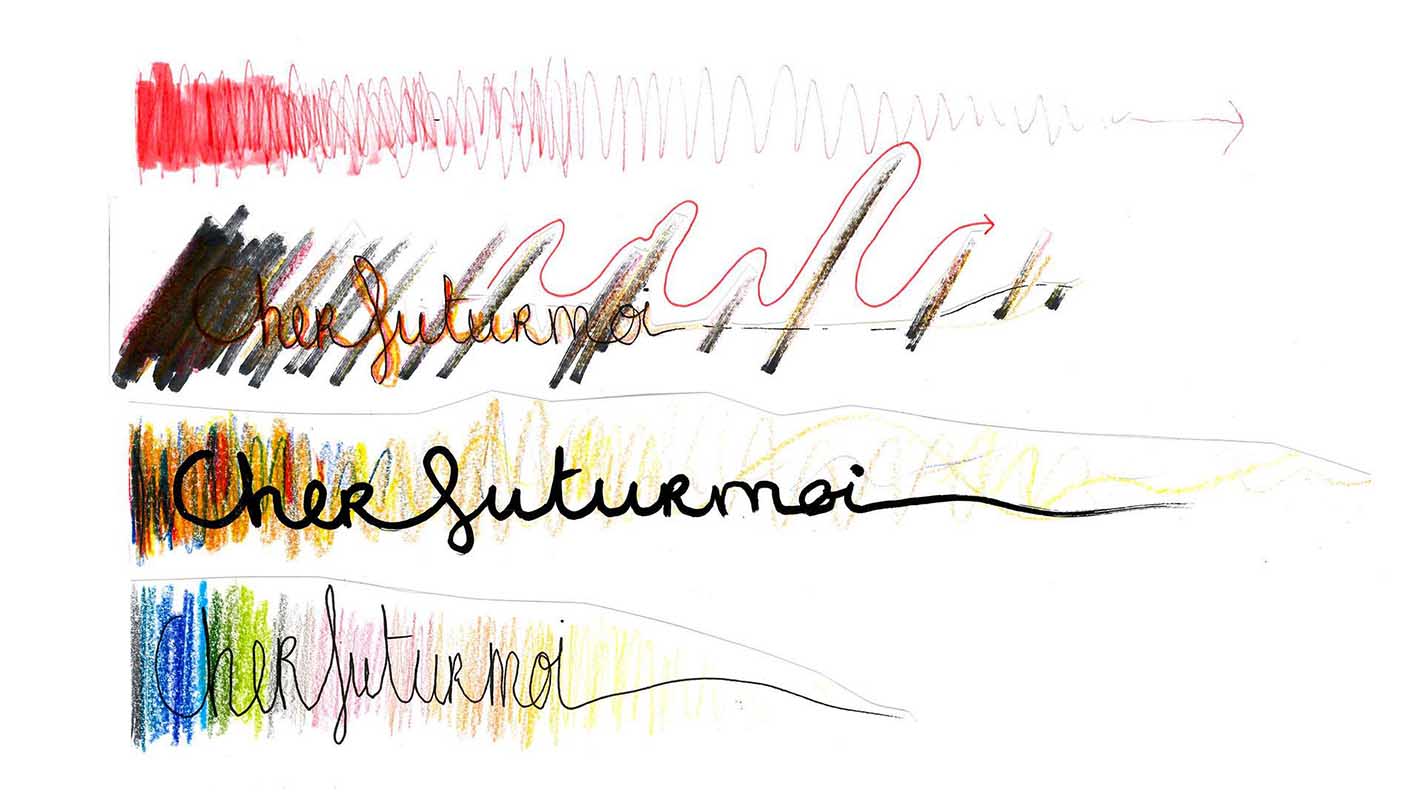 Cher futurmoi
Cher futurmoi
Cher futurmoi